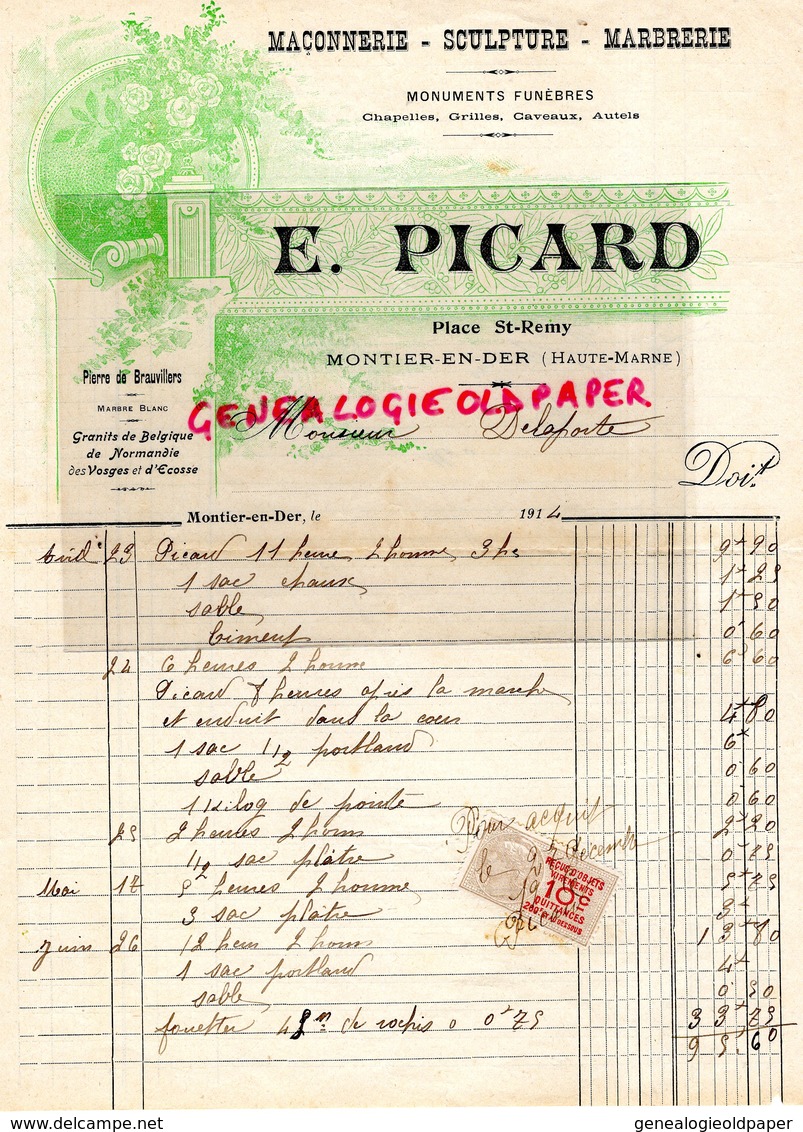 MAÇONNERIE - SCULPTURE - MARBRERIE
MONUMENTS FUNÈBRES
Chapelles, Grilles, Caveaux, Autels
E. PICARD
Place St-Remy
MONTIER-EN-DER (HAUTE-MARNE)
Pierre de Brauvillers
MARBRE BLANC
Granits de Belgique
de Normandie
des Vosges et d'Ecosse
GENEALOGIEOLDPAPER
Monsieur Delaporte
Doit
Montier-en-Der, le 1914
23 Picard 11 heures 2 homme 3h 9 90
1 sac chaux 1 25
sable 1 50
Ciment 0 60
24 6 heures 2 homme 6 60
Picard 8 heures après la marche
et enduit dans la cour 4 80
1 sac 1/2 portland 6
sable 0 60
1 Kilog de pointe 0 60
25 2 heures 2 hom 2 20
1/2 sac plâtre 0 75
Mai 17 5 heures 2 homme 5 75
3 sac plâtre 3
Juin 26 12 heur 2 hom 13 80
1 sac portland 4
sable 0 50
45 m de rochis 0 75 33 75
95 60
Pour acquit
le 25 décembre
19
Picard
REÇUS D'OBJETS
VIREMENTS
10c
QUITTANCES
200F ET AU DESSOUS
genealogieoldpaper